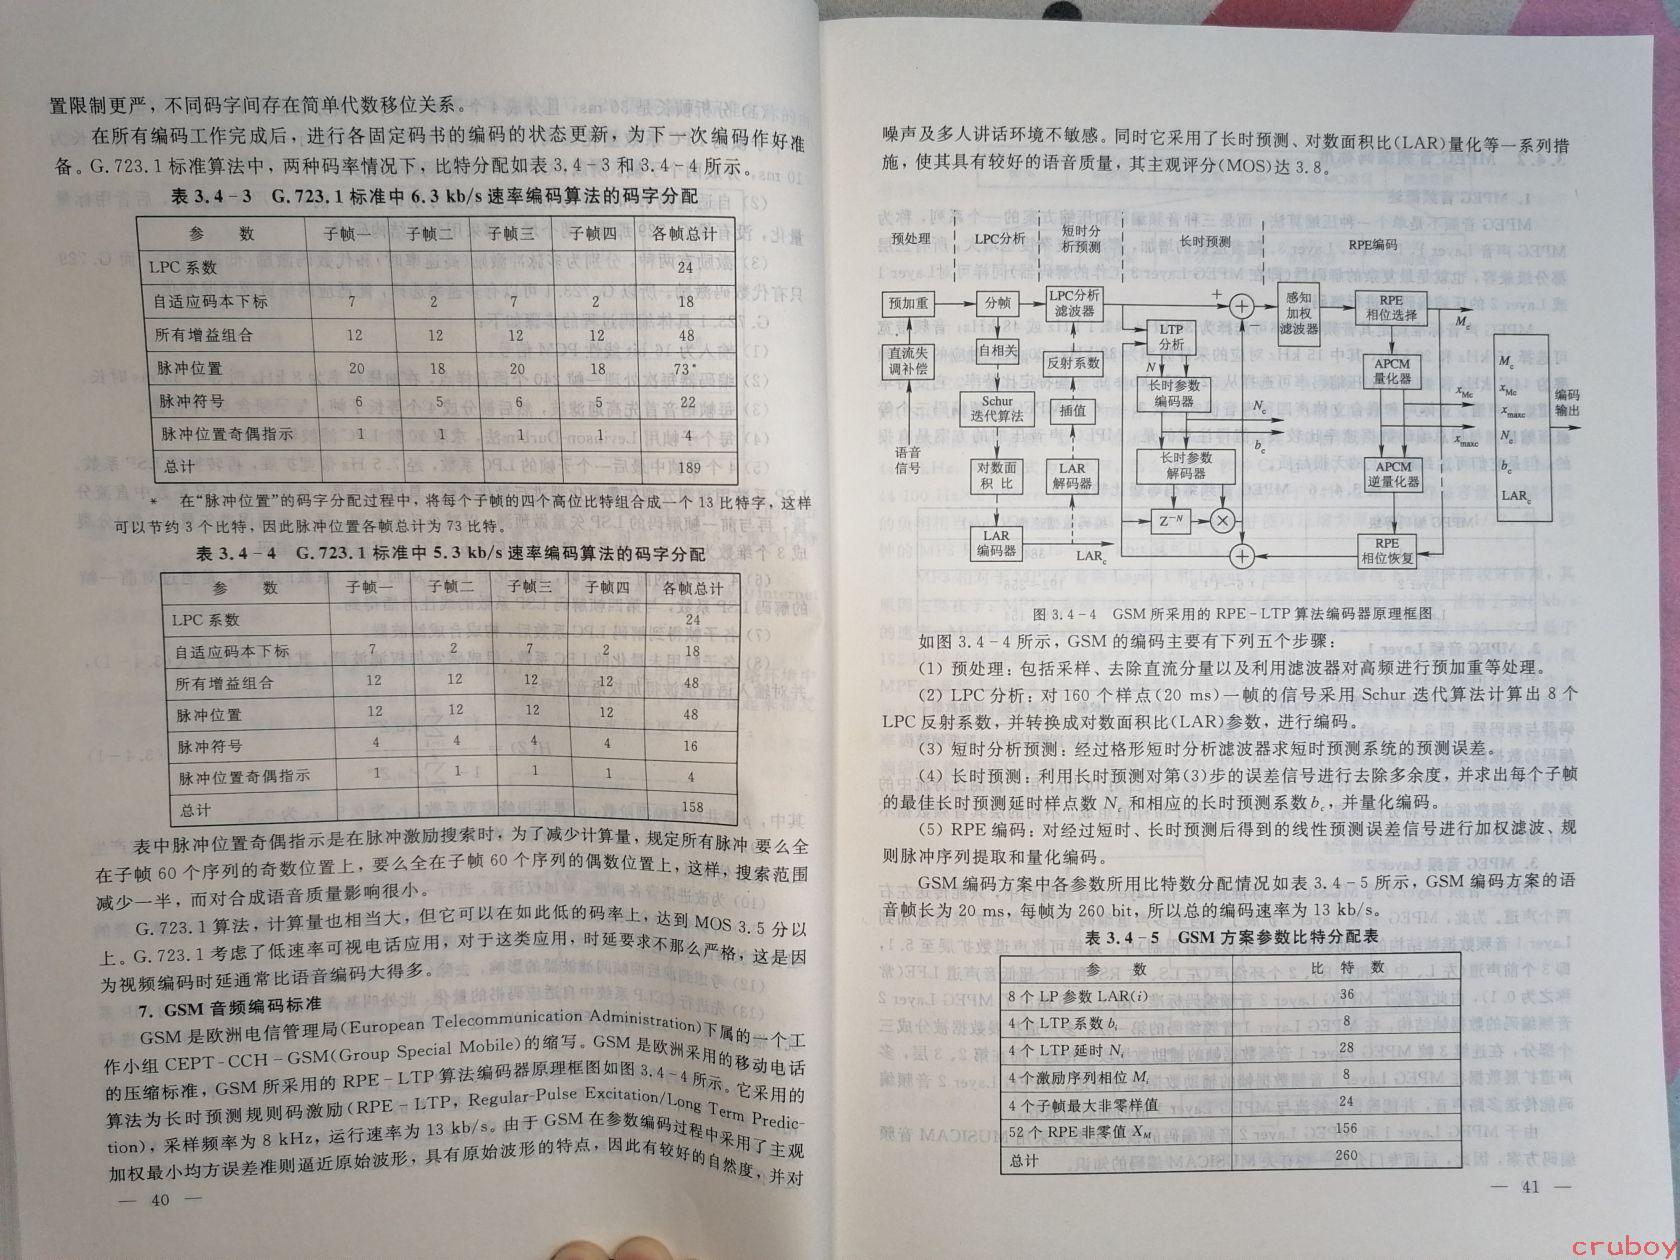 置限制更严，不同码字间存在简单代数移位关系。
在所有编码工作完成后，进行各固定码书的编码的状态更新，为下一次编码作好准
备。G.723.1标准算法中，两种码率情况下，比特分配如表3.4-3和3.4-4所示。
表3.4-3 G.723.1标准中6.3 kb/s速率编码算法的码字分配
参 数 子帧一 子帧二 子帧三 子帧四 各帧总计
LPC系数 24
自适应码本下标 7 2 7 2 18
所有增益组合 12 12 12 12 48
脉冲位置 20 18 20 18 73*
脉冲符号 6 5 6 5 22
脉冲位置奇偶指示 1 1 1 1 4
总计 189
* 在“脉冲位置”的码字分配过程中，将每个子帧的四个高位比特组合成一个13比特字，这样
可以节约3个比特，因此脉冲位置各帧总计为73比特。
表3.4-4 G.723.1标准中5.3 kb/s速率编码算法的码字分配
参 数 子帧一 子帧二 子帧三 子帧四 各帧总计
LPC系数 24
自适应码本下标 7 2 7 2 18
所有增益组合 12 12 12 12 48
脉冲位置 12 12 12 12 48
脉冲符号 4 4 4 4 16
脉冲位置奇偶指示 1 1 1 1 4
总计 158
表中脉冲位置奇偶指示是在脉冲激励搜索时，为了减少计算量，规定所有脉冲要么全
在子帧60个序列的奇数位置上，要么全在子帧60个序列的偶数位置上，这样，搜索范围
减少一半，而对合成语音质量影响很小。
G.723.1算法，计算量也相当大，但它可以在如此低的码率上，达到MOS 3.5分以
上。G.723.1考虑了低速率可视电话应用，对于这类应用，时延要求不那么严格，这是因
为视频编码时延通常比语音编码大得多。
7. GSM音频编码标准
GSM是欧洲电信管理局(European Telecommunication Administration)下属的一个工
作小组CEPT-CCH-GSM(Group Special Mobile)的缩写。GSM是欧洲采用的移动电话
的压缩标准，GSM所采用的RPE-LTP算法编码器原理框图如图3.4-4所示。它采用的
算法为长时预测规则码激励(RPE-LTP，Regular-Pulse Excitation/Long Term Predic-
tion)，采样频率为8 kHz，运行速率为13 kb/s。由于GSM在参数编码过程中采用了主观
加权最小均方误差准则逼近原始波形，具有原始波形的特点，因此有较好的自然度，并对
— 40 —
噪声及多人讲话环境不敏感。同时它采用了长时预测、对数面积比(LAR)量化等一系列措
施，使其具有较好的语音质量，其主观评分(MOS)达3.8。
预处理 LPC分析 短时分 长时预测 RPE编码
析预测
预加重
分帧
LPC分析
滤波器
+
感知
加权
滤波器
RPE
相位选择
Mc
直流失
调补偿
自相关
反射系数
LTP
分析
−
APCM
量化器
Schur
迭代算法
插值
长时参数
编码器
Nc
bc
xMc
xmaxc
语音
信号
对数面
积 比
LAR
解码器
长时参数
解码器
APCM
逆量化器
Mc
xMc
xmaxc
Nc
bc
LARc
编码
输出
LAR
编码器
LARc
Z−N
×
+
RPE
相位恢复
图3.4-4 GSM所采用的RPE-LTP算法编码器原理框图
如图3.4-4所示，GSM的编码主要有下列五个步骤：
(1) 预处理：包括采样、去除直流分量以及利用滤波器对高频进行预加重等处理。
(2) LPC分析：对160个样点(20 ms)一帧的信号采用Schur迭代算法计算出8个
LPC反射系数，并转换成对数面积比(LAR)参数，进行编码。
(3) 短时分析预测：经过格形短时分析滤波器求短时预测系统的预测误差。
(4) 长时预测：利用长时预测对第(3)步的误差信号进行去除多余度，并求出每个子帧
的最佳长时预测延时样点数Nc和相应的长时预测系数bc，并量化编码。
(5) RPE编码：对经过短时、长时预测后得到的线性预测误差信号进行加权滤波、规
则脉冲序列提取和量化编码。
GSM编码方案中各参数所用比特数分配情况如表3.4-5所示，GSM编码方案的语
音帧长为20 ms，每帧为260 bit，所以总的编码速率为13 kb/s。
表3.4-5 GSM方案参数比特分配表
参 数 比 特 数
8个LP参数LAR(i) 36
4个LTP系数bi 8
4个LTP延时Ni 28
4个激励序列相位Mi 8
4个子帧最大非零样值 24
52个RPE非零值XM 156
总计 260
— 41 —
cruboy